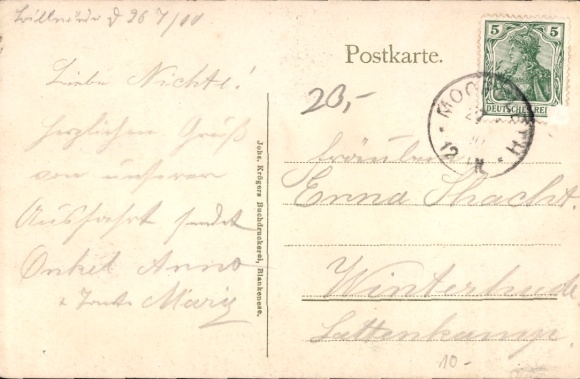 d 26 7/11
Liebe Nichte!
Herzlichen Gruß
von unserer
Ausfahrt sendet
Onkel Anno
+ Tante Marie
Johs. Krögers Buchdruckerei, Blankenese.
Postkarte.
20,-
5 5
DEUTSCHES REI
MOO
12
Fräulein
Erna Schacht.
Winterhude
Lattenkamp.
10-